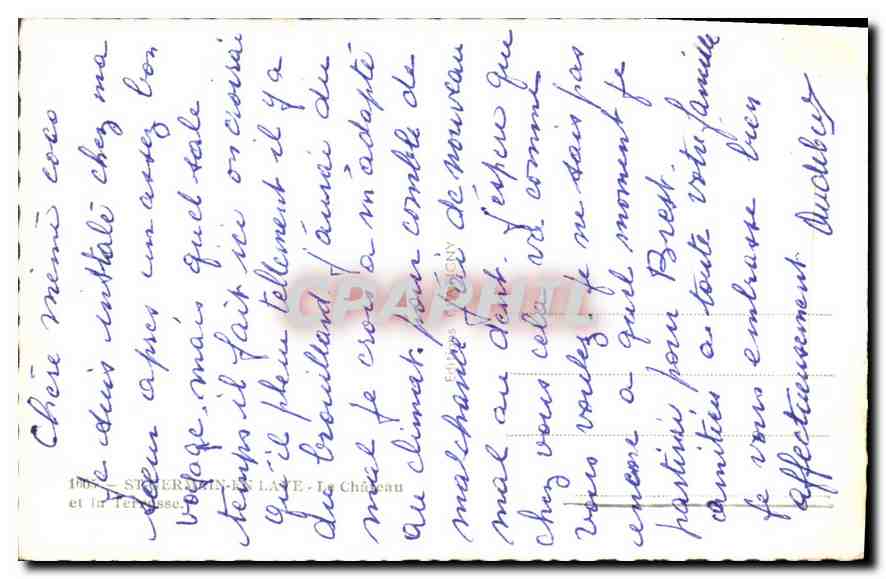 Chère mémé coco
Je suis installé chez ma
soeur après un assez bon
voyage, mais quel sale
temps il fait ici on croirai
qu'il pleut tellement il y a
du brouillard. J'aurai du
mal je crois a m'adapté
au climat. pour comble de
malchance j'ai de nouveau
mal au dent. J'espère que
chez vous cela va comme
vous voulez. Je ne sais pas
encore a quel moment je
partirai pour Brest.
amitiés a toute votre famille
je vous embrasse bien
affectueusement
1007 - ST-GERMAIN-EN-LAYE - Le Château
et la Terrasse.
CPAPHIL